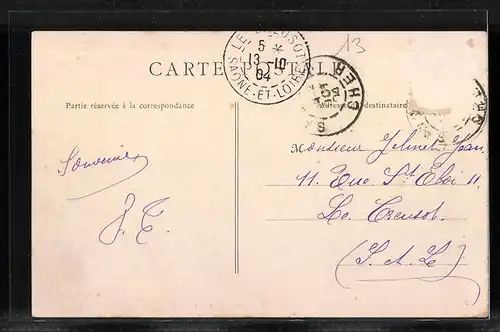 13
LE CREUSOT
5 *
13 -10
04
SAÔNE-ET-LOIRE
CARTE POSTALE
CHER
Partie réservée à la correspondance
Adresse du destinataire
Souvenir
Monsieur Jolivet Jean
11. Rue St Eloi 11
Le Creusot.
(S. et L.)